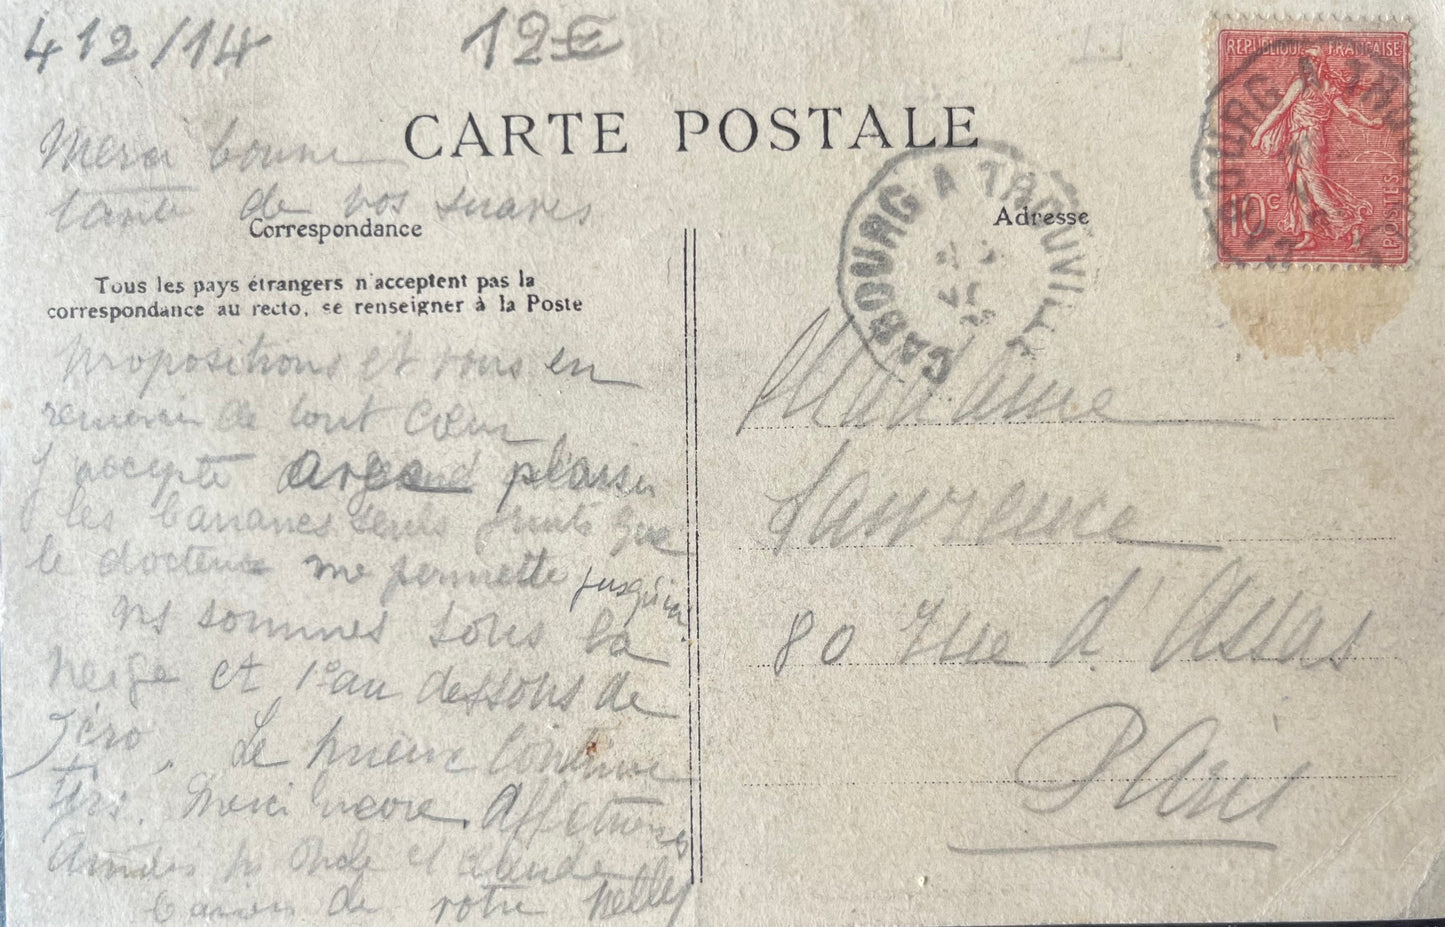 412/14
12€
REPUBLIQUE FRANÇAISE
10c
POSTES
CARTE POSTALE
CABOURG A TROUVILLE
Correspondance
Adresse
Tous les pays étrangers n'acceptent pas la
correspondance au recto, se renseigner à la Poste
Merci bonne
tante de vos suaves
propositions et vous en
remercie de tout cœur
J'accepte avec grand plaisir
les bananes seuls fruits que
le docteur me permette jusqu'ici.
Ns sommes sous la
neige et 1° au dessous de
zéro. Le mieux continue
tjrs. Merci encore. Affectueuses
Amitiés pr Oncle et
de votre Nelly
Madame
Lawrence
80 rue d'Assas
Paris